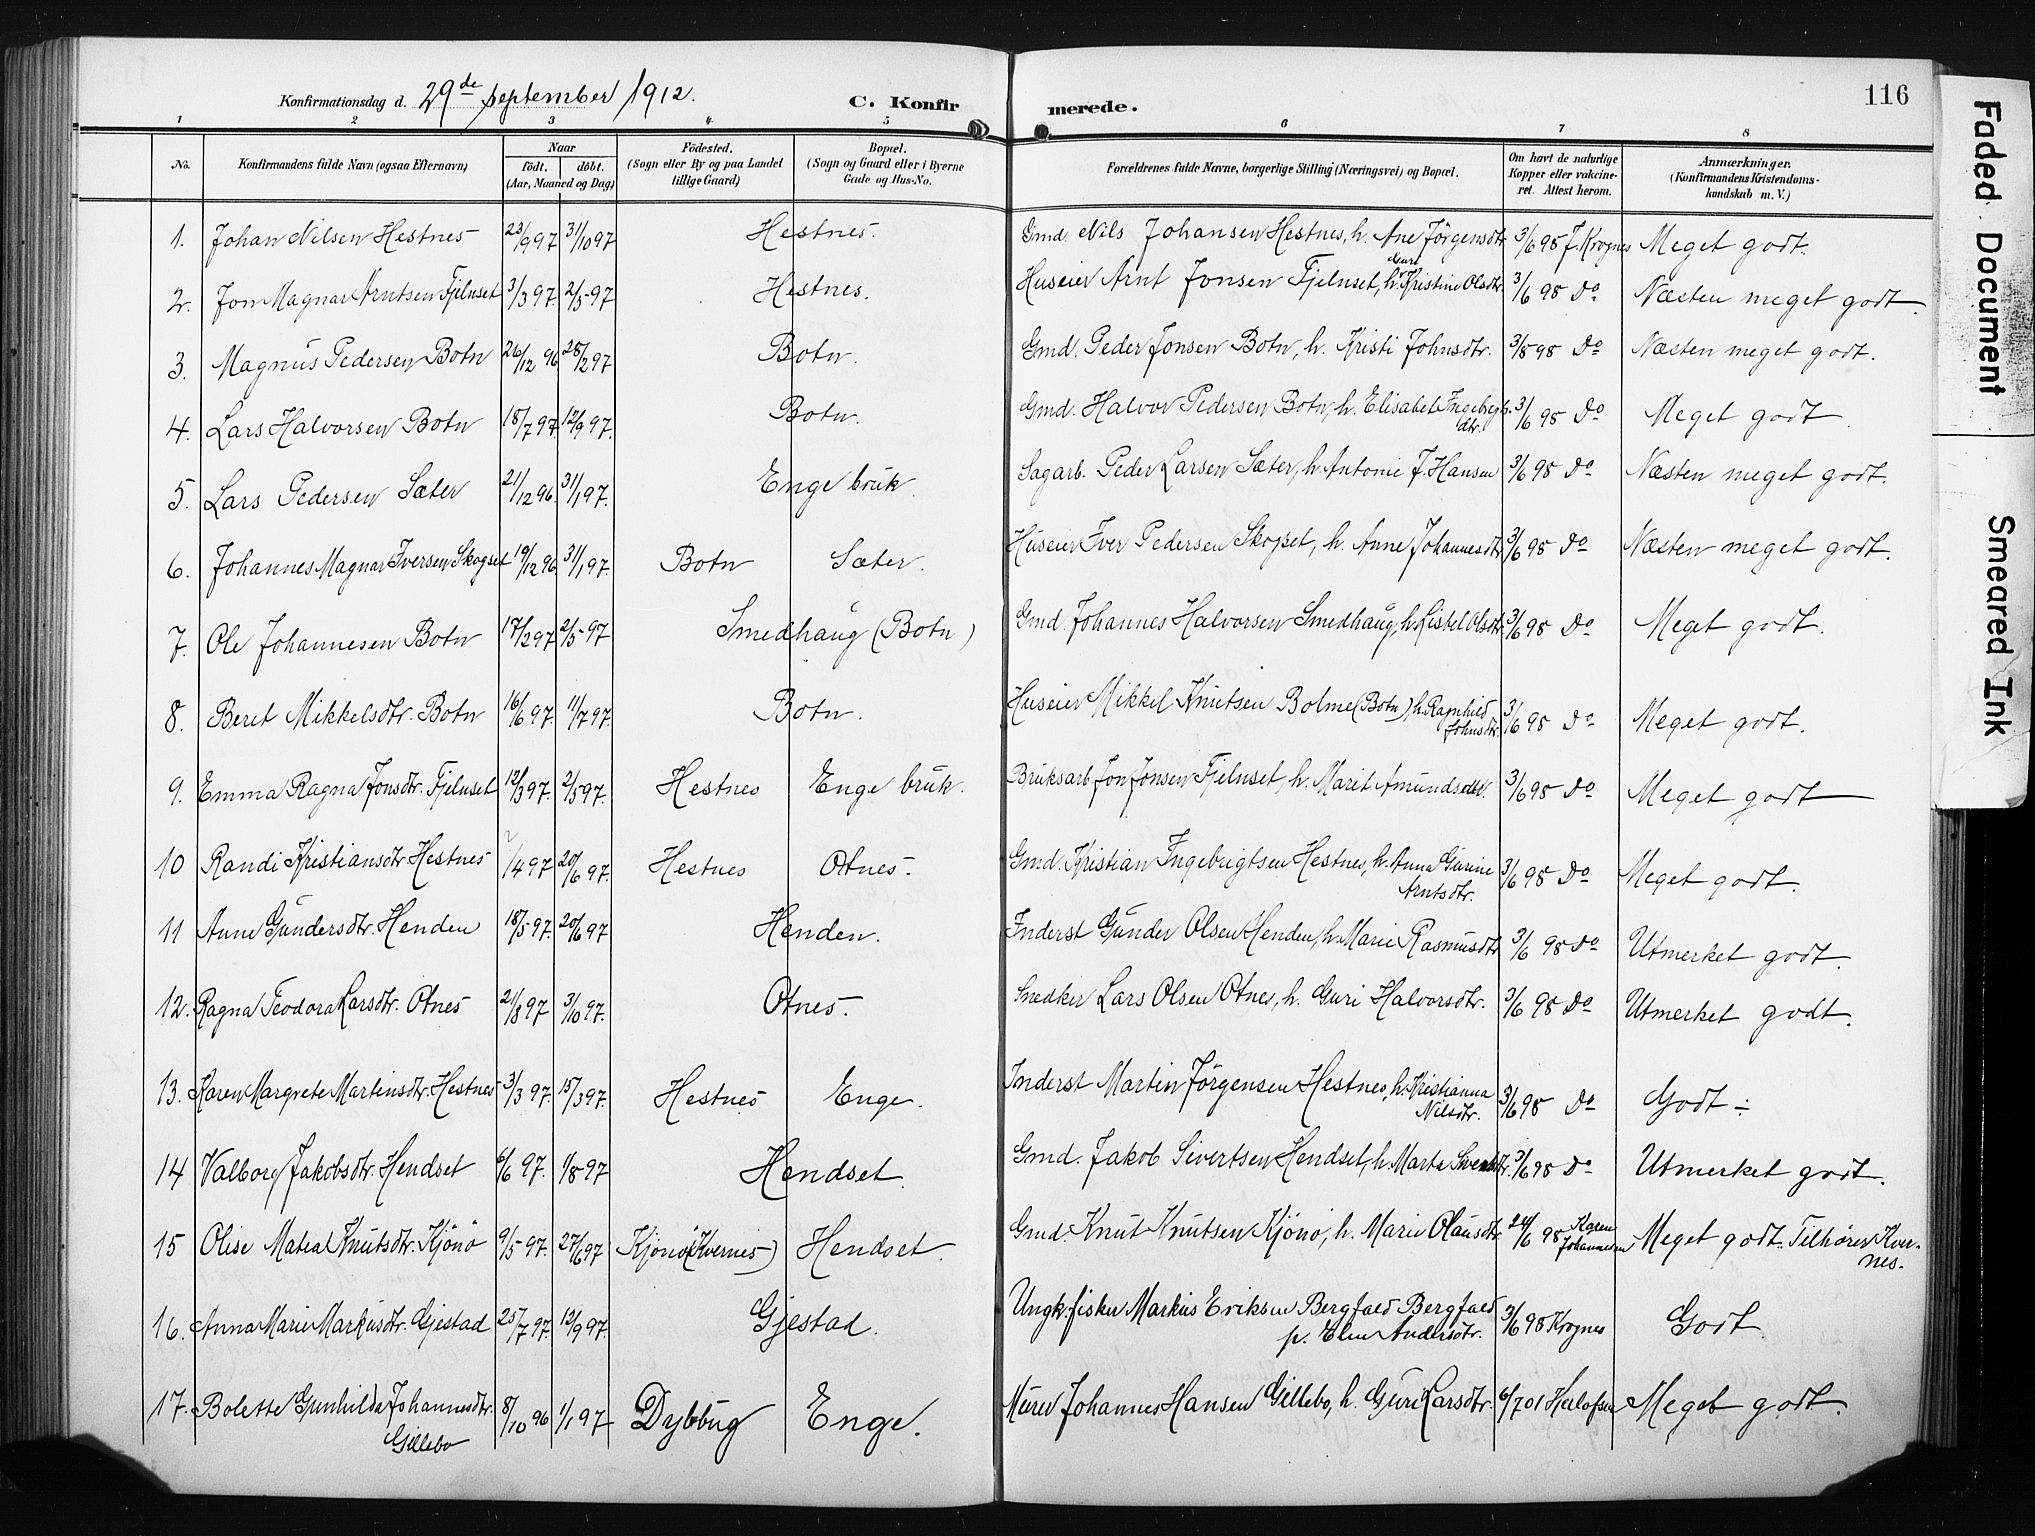 Konfirmationsdag d. 29de september 1912. C. Konfirmerede. 116
1 2 3 4 5 6 7 8
No. Konfirmandens fulde Navn (ogsaa Efternavn) Naar født. døbt. (Aar, Maaned og Dag) Fødested. (Sogn eller By og paa Landet tillige Gaard) Bopæl. (Sogn og Gaard eller i Byerne Gade og Hus-No. Forældrenes fulde Navne, borgerlige Stilling (Næringsvei) og Bopæl. Om havt de naturlige Kopper eller vakcineret. Attest herom. Anmærkninger. (Konfirmandens Kristendomskundskab m. V.)
1. Johan Nilsen Hestnes 23/9 97 31/10 97 Hestnes. Gmd. Nils Johansen Hestnes, h. Ane Jörgensdtr. 3/6 98 J. Krognes Meget godt.
2. Jon Magnar Arntsen Fjelnset 3/3 97. 2/5-97 Hestnes. Huseier Arnt Jonsen Fjelnset, h. Guri Kristine Olsdtr. 3/6 98 Do Næsten meget godt.
3. Magnus Pedersen Botn 26/12 96 28/2 97 Botn. Gmd. Peder Jonsen Botn, h. Kristi Johnsdtr. 3/8 98 Do Næsten meget godt.
4. Lars Halvorsen Botn 18/7 97. 12/9 97. Botn. Gmd. Halvor Pedersen Botn, h. Elisabet Ingebrigtsdtr. 3/6 98 Do Meget godt.
5. Lars Pedersen Sæter 21/12 96. 31/1 97. Enge bruk Sagarb. Peder Larsen Sæter, h. Antonie J. Hansen 3/6 98 Do Næsten meget godt.
6. Johannes Magnar Iversen Skogset 19/12 96. 31/1 97. Botn Sæter. Huseier Iver Pedersen Skogset, h. Anne Johannesdtr 3/6 98 Do Næsten meget godt.
7. Ole Johannesen Botn 17/2 97 2/5-97 Smedhaug (Botn) Gmd. Johannes Halvorsen Smedhaug, h. Lisbel Olsdtr. 3/6 98 Do Meget godt.
8. Beret Mikkelsdtr. Botn 16/6 97. 11/7 97. Botn. Huseier Mikkel Knutsen Bolme (Botn), h. Ragnhild Johnsdtr. 3/6 98 Do Meget godt.
9. Emma Ragna Jonsdtr. Fjelnset 12/3 97. 2/5 97. Hestnes Enge bruk. Bruksarb Jon Jonsen Fjelnset, h. Marit Amundsdtr. 3/6 98 Do Meget godt
10 Randi Kristiansdtr Hestnes ?/4 97 20/6 97. Hestnes Otnes. Gmd. Kristian Ingebrigtsen Hestnes, h. Anna Gurine Arntsdtr. 3/6 98 Do Meget godt.
11 Anne Gundersdtr. Henden 18/5-97. 20/6 97 Henden. Inderst Gunder Olsen Henden, h. Marie Rasmusdtr 3/6 98 Do Utmerket godt.
12. Ragna Teodora Larsdtr. Otnes 21/8 97 3/10 97. Otnes. Snedker Lars Olsen Otnes, h. Guri Halvorsdtr. 3/6 98 Do Utmerket godt.
13. Karen Margrete Martinsdtr. Hestnes 3/3 97. 15/3 97. Hestnes Enge. Inderst Martin Jörgensen Hestnes, h. Kristianna Nilsdtr. 3/6 98 Do Godt ÷
14 Valborg Jakobsdtr. Hendset 6/6 97. 1/8 97 Hendset. Gmd. Jakob Sivertsen Hendset, h. Marta 3/6 98 Do Utmerket godt.
15 Olise Matea Knutsdtr. Kjönö 9/5-97. 27/6 97 Kjönö (Kvernes) Hendset. Gmd. Knut Knutsen Kjönö, h. Marie Olausdtr 24/6 98 Karen Johannesen Meget godt. Tilhører Kvernes.
16. Anna Marie Markusdtr. Gjestad 25/7 97. 12/9 97. Gjestad. Ungk. fisker Markus Eriksen Bergfald Bergfald p. Elen Andersdtr. 3/6 98 Krognes Godt.
17. Bolette Gunhilda Johannesdtr. Gillebo 8/10 96 1/1 97 Dybbug Enge. Murer Johannes Hansen Gillebo, h. Guri Larsdtr. 6/7 01 Meget godt.
Faded Document
Smeared Ink